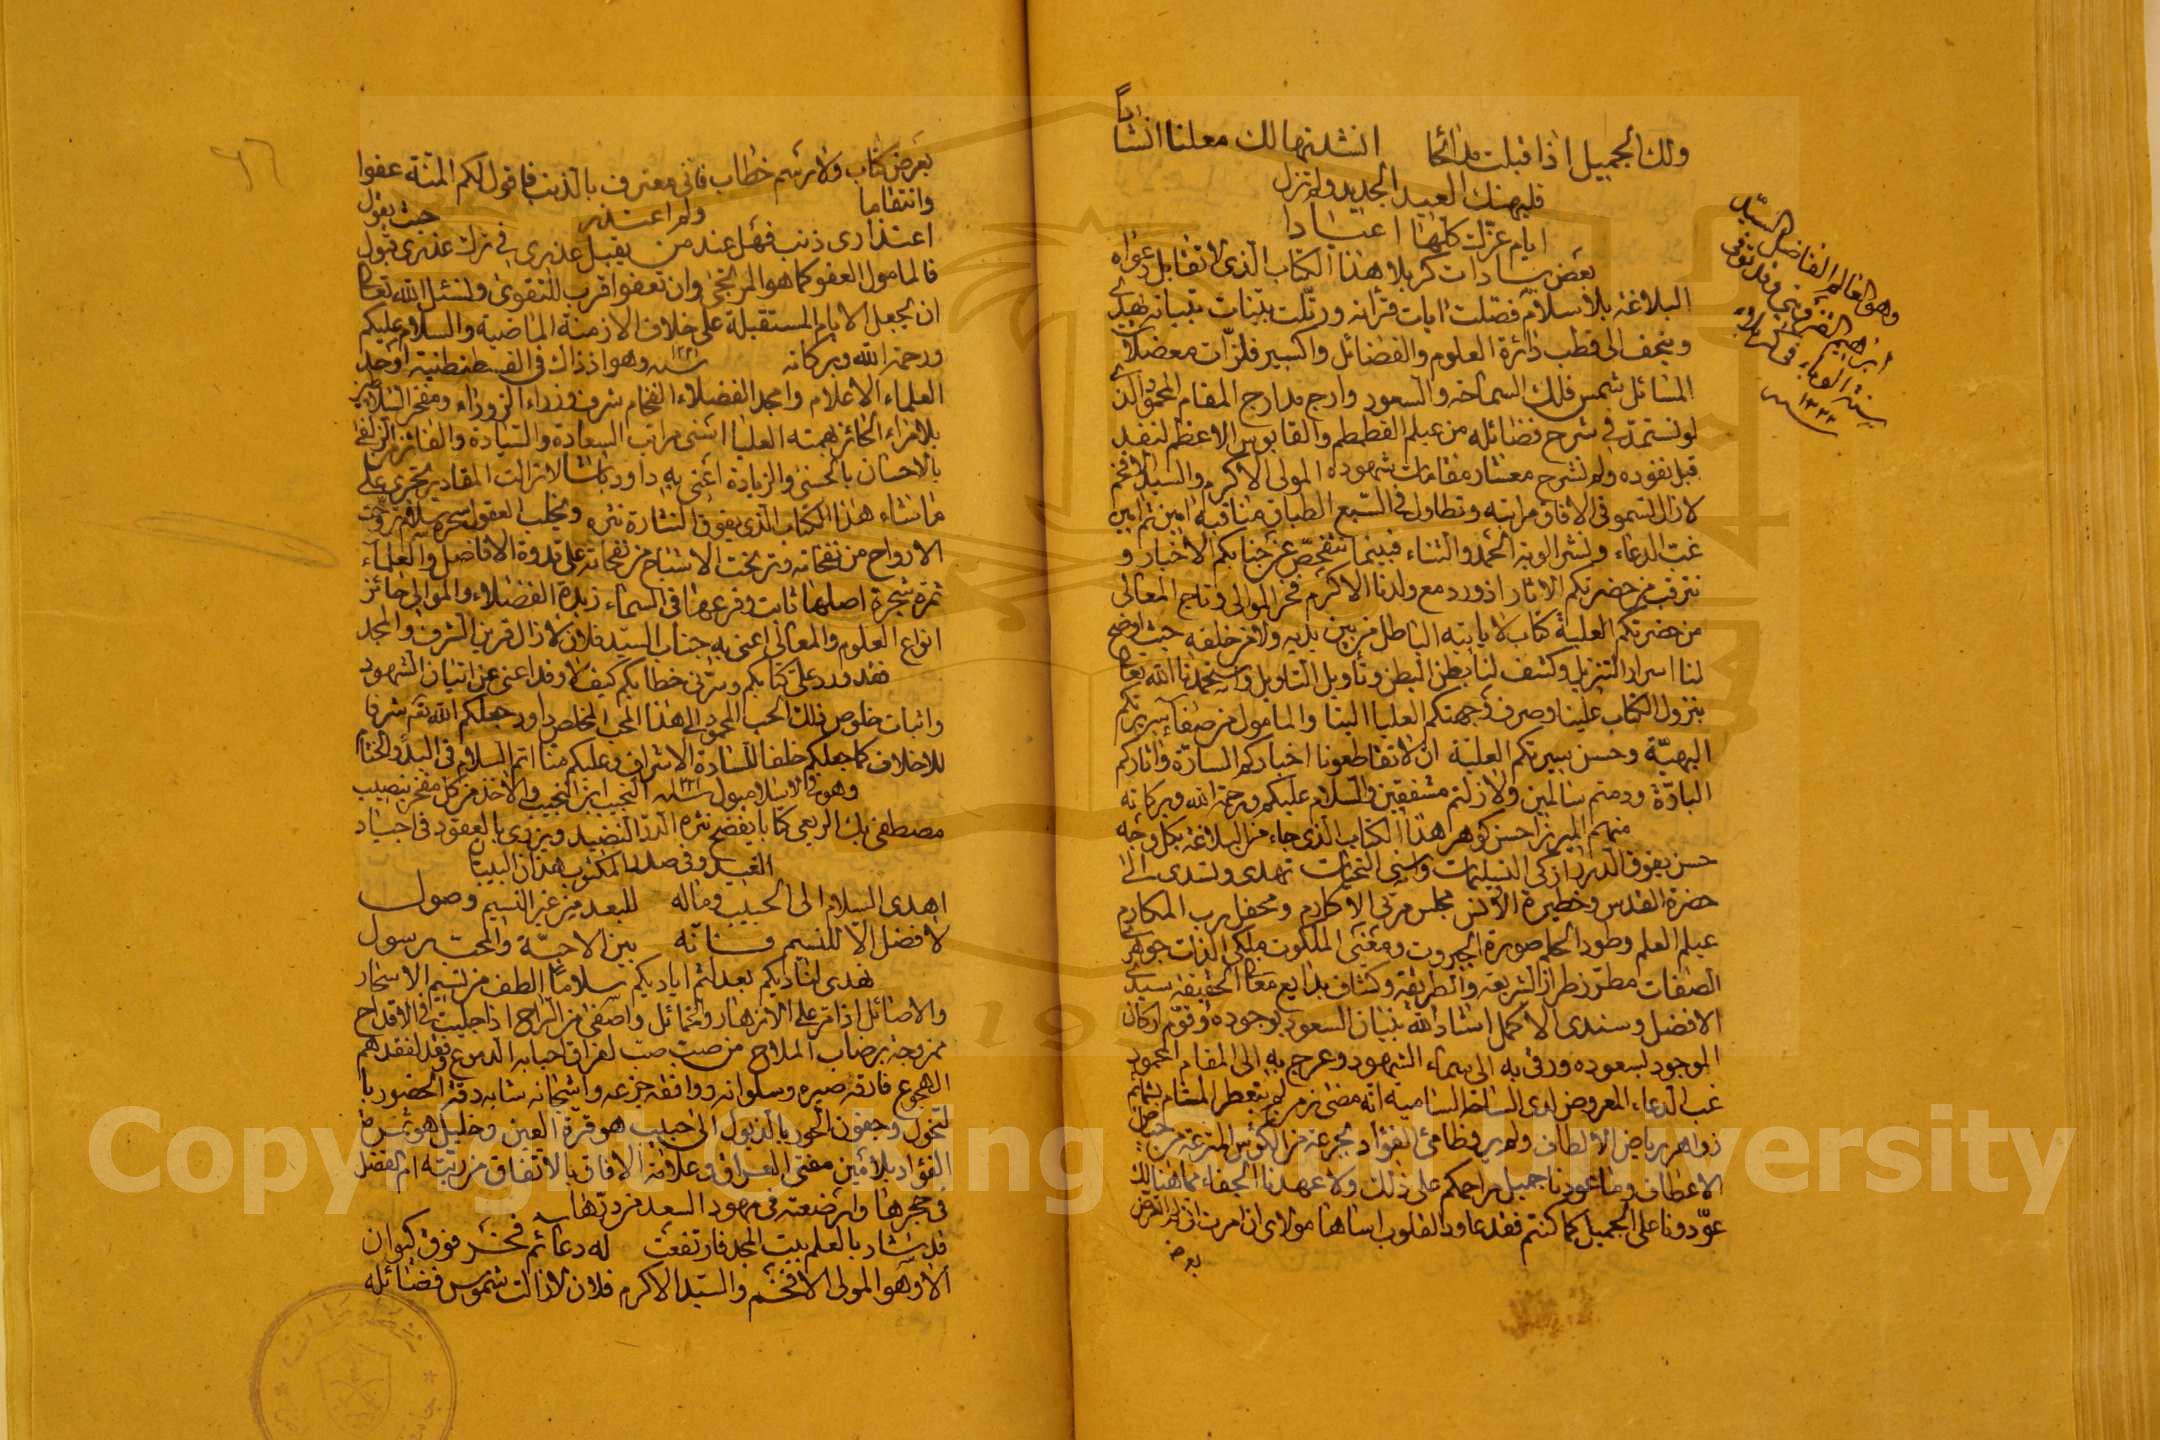 ولك الجميل اذا قبلت مدائحا انشدتها لك معلنا انشادا
فليهنك العيد الجديد ولم تزل
ايام عزّك كلها اعيادا
بعض سادات كربلا هذا الكتاب الذى لا تقابل دعواه
البلاغة بلا سلام فصّلت ايات قرآنه ورتّلت بينات تبيانه يهدى
ويتحف الى قطب دائرة العلوم والفضائل واكسير فلزّات معضلات
المسائل شمس فلك السماحة والسعود وارج مدارج المقام المحمود الذى
لو نستمدّ في شرح فضائله من عيلم الغطمطم والقابوس الاعظم لنفد
قبل نفوده ولم نشرح معشار مقامات شهوده المولى الاكرم والسيد الافخم
لازال تسمو فى الافاق مراتبه وتطاول فى السبع الطباق مناقبه امين ثم امين
غب الدعاء ونشر الوية الحمد والثناء فبينما نتفحّص عن جنابكم الاخبار و
نترقب من حضرتكم الاثار اذ ورد مع ولدنا الاكرم فخر الموالى وتاج المعالى
من حضرتكم العلية كتاب لا يأتيه الباطل من بين يديه ولا من خلفه حيث اوضح
لنا اسرار التنزيل وكشف لنا بطن البطن وتأويل التاويل واستحمدنا الله تعا
بنزول الكتاب علينا وصرف وجهتكم العليا الينا والمامول من صفاء سريرتكم
البهيّة وحسن سيرتكم العلية ان لا تقاطعونا اخباركم السارّة واثاركم
البادّة ودمتم سالمين ولا زلتم مشفقين والسلام عليكم ورحمة الله وبركاته
منهم الميرزا حسن كوهر هذا الكتاب الذى جاء من البلاغة بكل وجه
حسن يفوق الدرر ازكى التسليمات واسنى التحيات تهدى وتسدى الى
حضرة القدس وحظيرة الانس مجلس مربّى الاكارم ومحفل رب المكارم
عيلم العلم وطود الحلم صورة الجبروت ومعنى الملكوت ملكى الذات جوهرى
الصفات مطرّز طراز الشريعة والطريقة وكشاف بدايع معانى الحقيقة سيدى
الافضل وسندى الاكمل اشاد الله بنيان السعود بوجوده وقوّم اركان
الموجود بسعوده ورقى به الى سماء الشهود وعرج به الى المقام المحمود
غب الدعاء المعروض لدى الساحة السامية انه مضى زمن لم يتعطر المشام بشمائم
زواهر رياض الالطاف ولم يرو ظامئ الفؤاد بجرعة من الكؤس المترعة من حياض
الاعطاف وما عودنا جميل مراحمكم على ذلك ولا عهدنا الجفاء مما هنالك
عوّدونا على الجميل كما كنتم فقد عاود القلوب اساها مولاى ان امرت
بعض
وهو العالم الفاضل السيد
ابراهيم القزوينى وقد توفى
فى كربلا
سنة الوباء
بعرض كتاب ولا برسم خطاب فانى معترف بالذنب فاقول لكم المنّة عفوا
وانتقاما ولم اعتذر حيث يقول
اعتذارى ذنب فهل عند من يقبل عذرى في ترك عذرى قبول
فالمامول العفو كما هو المرتجى وان تعفوا اقرب للتقوى ولنسئل الله تعالى
ان يجعل الايام المستقبلة على خلاف الازمنة الماضية والسلام عليكم
ورحمة الله وبركاته وهو اذ ذاك فى القسطنطنية اوحد
العلماء الاعلام وامجد الفضلاء الفخام شرف وزراء الزوراء ومفخر السلاطين
بلا مراء الحائز بهمته العليا اسنى مراتب السعادة والسيادة والفائز
بالاحسان بالحسنى والزيادة اعنى به داود باشا لازالت المقادير تجرى على
ما شاء هذا الكتاب الذى يفوق النشارة نثره ويخلب العقول سحره سلام تروّحت
الارواح من نفحاته وترنحت الاشباح من نفحاته على قدوة الافاضل والعلماء
ثمرة شجرة اصلها ثابت وفرعها فى السماء زبدة الفضلاء والموالى حائز
انواع العلوم والمعالى اعنى به جناب السيد فلان لازال قرين الشرف والمجد
فقد ورد على كتابكم وسرّنى خطابكم كيف لا وقد اغنى عن اتيان الشهود
واثبات خلوص ذلك الحب المحمود الى هذا المحب المخلص داود جعلكم الله تعا شرفا
للاخلاف كما جعلكم خلفا للسادة الاشراف وعليكم منا اتم السلام فى البدؤ والختام
وهو فى الاسلامبول النجيب ابن النجيب والاخذ من كل مفخر بنصيب
مصطفى بك الربعى كتابا يفضح نثره الدرّ النضيد ويزرى بالعقود فى اجياد
الغيد وفى صدر المكتوب هذان البيتان
اهدى السلام الى الحبيب وماله للبعد من غير النسيم وصول
لا فضل الا للنسيم فانه بين الاحبّة والمحب رسول
نهدى لناديكم بعد لثم اياديكم سلاما الطف من نسيم الاسحار
والاصائل اذا مر على الازهار والخمائل واصفى من الراح اذا جليت فى الاقداح
ممزوجة برضاب الملاح من صب صبّ لفراق احبابه الدموع وفقد لفقدهم
الهجوع فارقه صبره وسلوانه ووافقه جزعه واشجانه شابه دقة الخصور با
لنحول وجفون الحور بالذبول الى حبيب هو قرة العين وخليل هو ثمرة
الفؤاد بلا مين مفتى العراق وعلامة الافاق بالاتفاق من ربّته ام الفضل
فى حجرها وارضعته فى مهود السعد من درّها
قد شاد بالعلم بيت المجد فارتفعت له دعائم فخر فوق كيوان
الا وهو المولى الافخم والسيد الاكرم فلان لازالت شموس فضائله
Copyright © King Saud University